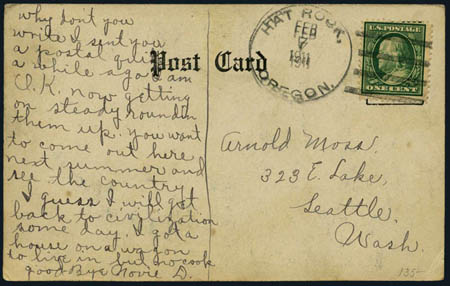 why don't you
write I sent you
a postal quite
a while ago I am
O.K. now getting
on steady roundin
them up. you want
to come out here
next summer and
see the country
I guess I will get
back to civilization
some day. I got a
house on a wagon
to live in but no cook
good Bye Novie D.
Post Card
HAT ROCK,
FEB
7
1911
OREGON.
U.S. POSTAGE
ONE CENT
Arnold Moss.
323 E. Lake,
Seattle.
Wash.
135-